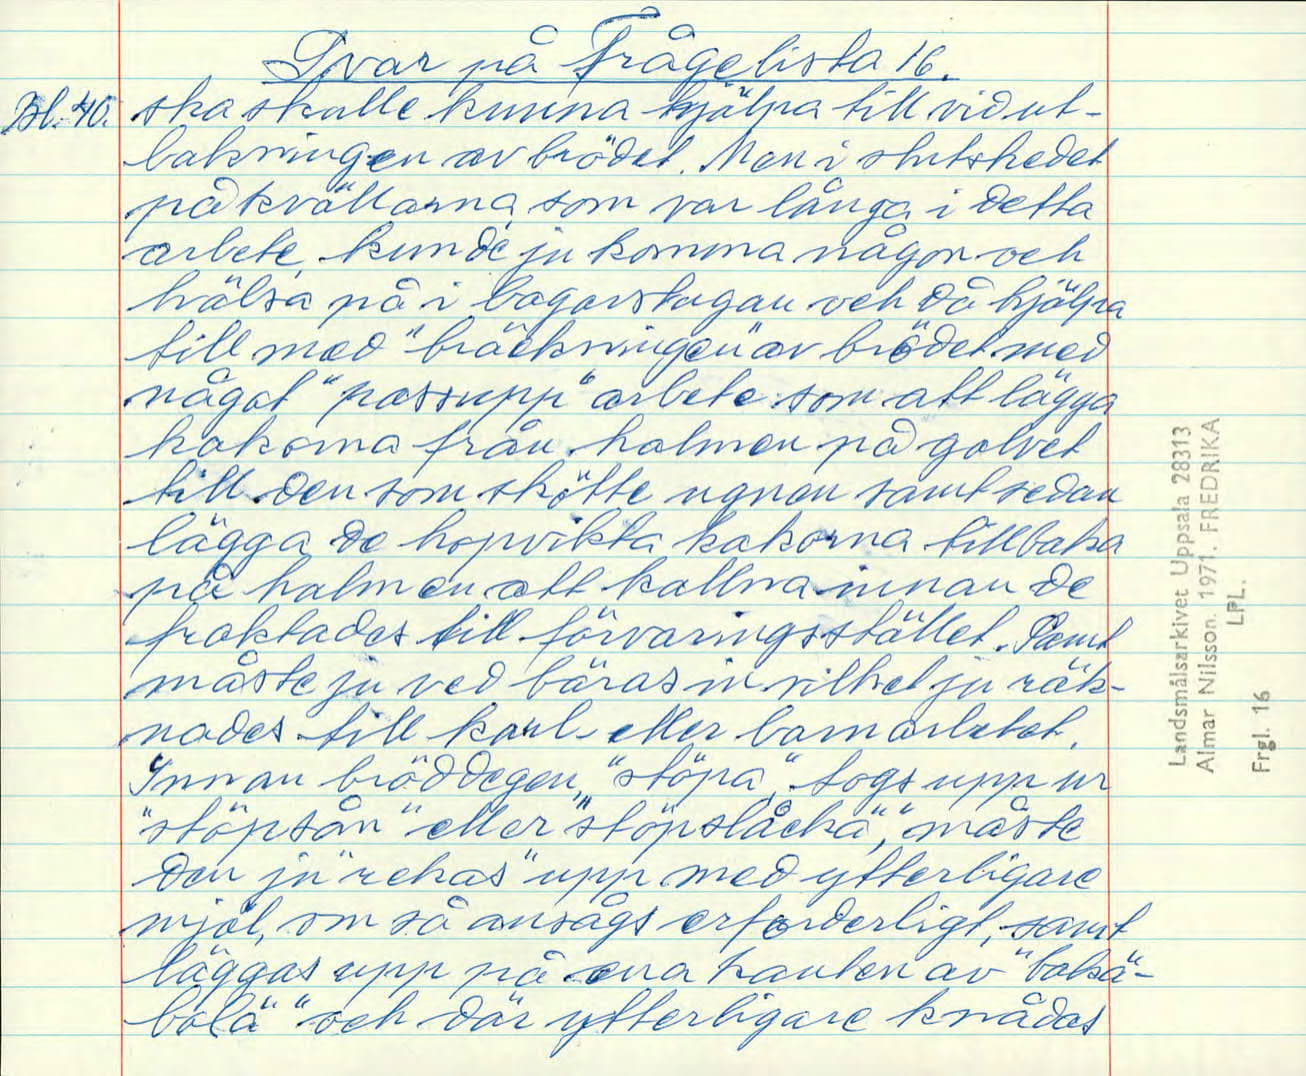 Svar på Frågelista 16.
Bl. 40. ska skalle kunna hjälpa till vid ut-
bakningen av brödet. Men i slutskedet
på kvällarna, som var långa i detta
arbete, kunde ju komma någon och
hälsa på i bagarstugan och då hjälpa
till med "bräckningen" av brödet med
något "passupp" arbete som att lägga
kakorna från halmen på golvet
till den som skötte ugnen samt sedan
lägga de hopvikta kakorna tillbaka
på halmen att kallna innan de
fraktades till förvaringsstället. Samt
måste ju ved bäras in vilket ju räk-
nades till karl- eller barnarbetet.
Innan bröddegen, "stöpa", togs upp ur
"stöpsån" eller "stöpslåckä", måste
den ju "rekas" upp med ytterligare
mjöl, om så ansågs erforderligt, samt
läggas upp på ena kanten av "bakä-
bolä" och där ytterligare knådas
Landsmålsarkivet Uppsala 28313
Almar Nilsson. 1971. FREDRIKA
LPL.
Frgl. 16